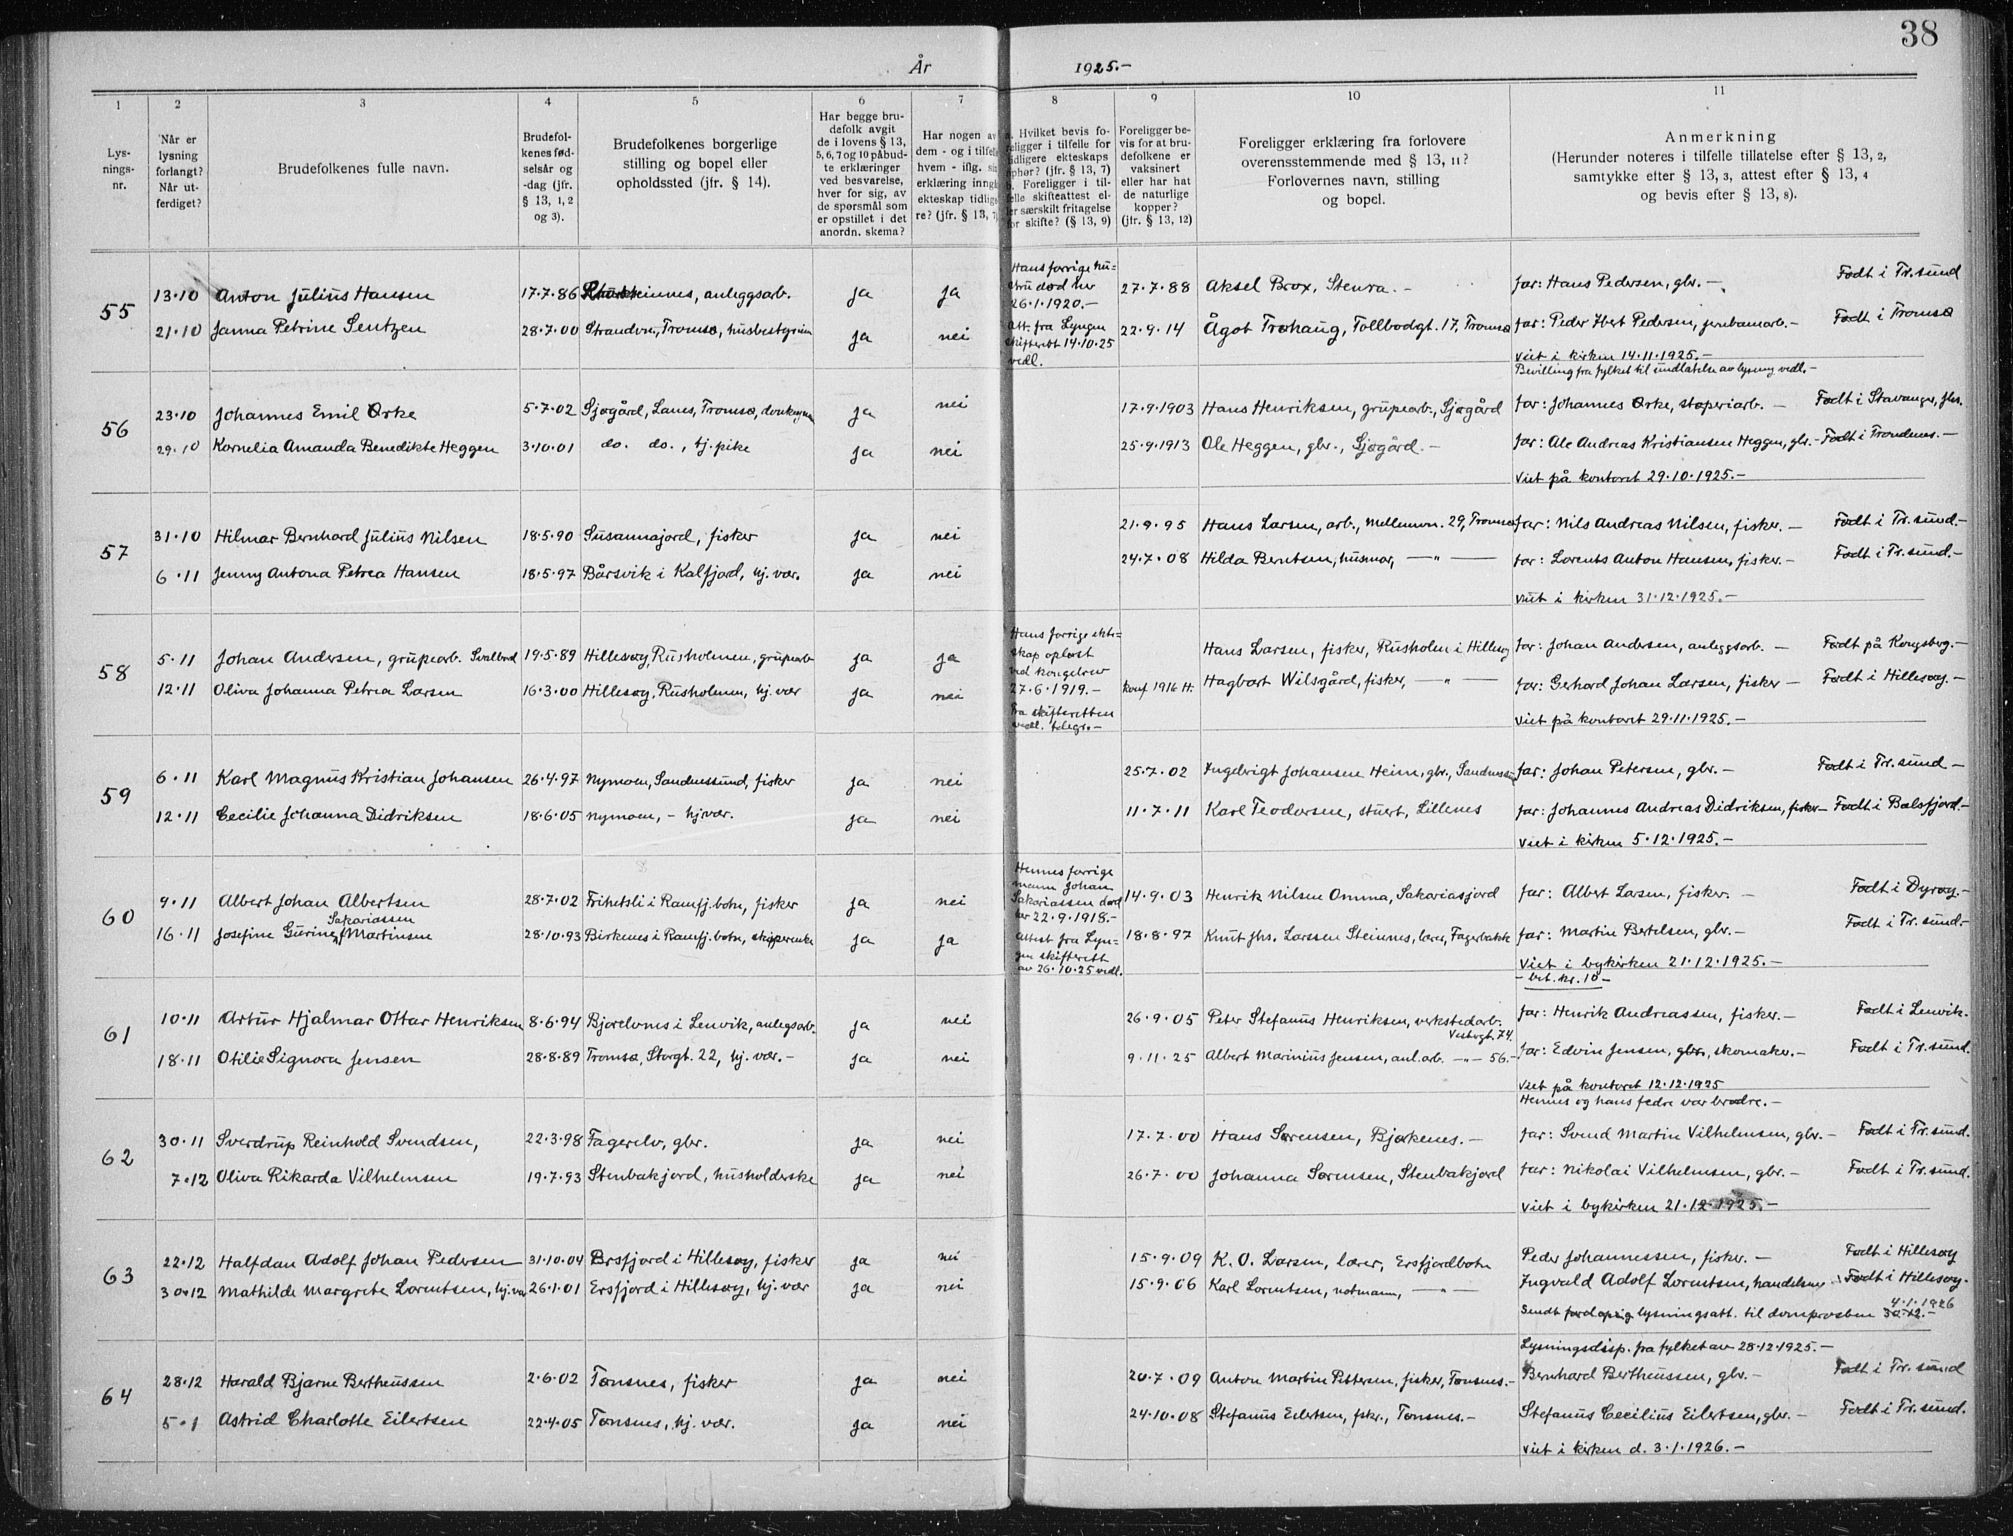 38
År 1925.-
1 2 3 4 5 6 7 8 9 10 11
Lys-
nings-
nr.
Når er
lysning
forlangt?
Når ut-
ferdiget?
Brudefolkenes fulle navn.
Brudefol-
kenes fød-
selsår og
-dag (jfr.
§ 13, 1, 2
og 3).
Brudefolkenes borgerlige
stilling og bopel eller
opholdssted (jfr. § 14).
Har begge bru-
defolk avgit
de i lovens § 13,
5, 6, 7 og 10 påbud-
te erklæringer
ved besvarelse,
hver for sig, av
de spørsmål som
er opstillet i det
anordn. skema?
Har nogen av
dem - og i tilfelle
hvem - iflg. sin
erklæring inngå
ekteskap tidlig
re? (jfr. § 13, 7)
a. Hvilket bevis fo-
religger i tilfelle for
tidligere ekteskaps
ophør? (jfr. § 13, 7)
b. Foreligger i til-
felle skifteattest el-
ler særskilt fritagelse
for skifte? (§ 13, 9)
Foreligger be-
vis for at bru-
defolkene er
vaksinert
eller har hat
de naturlige
kopper?
(jfr. § 13, 12)
Foreligger erklæring fra forlovere
overensstemmende med § 13, 11?
Forlovernes navn, stilling
og bopel.
Anmerkning
(Herunder noteres i tilfelle tillatelse efter § 13, 2,
samtykke efter § 13, 3, attest efter § 13, 4
og bevis efter § 13, 8).
55
13.10 Anton Julius Hansen 17.7.86 anleggsarb. ja ja 27.7.88 Aksel Brox, Stenra.- far: Hans Pedersen, gbr.- Født i Tr.sund
21.10 Janna Petrine Sentzen 28.7.00 Strandvn., Tromsø, husbestyrerin ja nei 22.9.14 Ågot Trøhaug, Tollbodgt. 17, Tromsø far: Peder Ibert Pedersen, jernbanearb.- Født i Tromsø
Hans forrige hu=
stru død her
26.1.1920.-
Att. fra Lyngen
skifterett 14.10.25
vedl.
Viet i kirken 14.11.1925.-
Bevilling fra fylket til undlatelse av lysning vedl.-
56
23.10 Johannes Emil Ørke 5.7.02 Sjøgård, Lanes, Tromsø, ja nei 17.9.1903 Hans Henriksen, grupearb., Sjøgård far: Johannes Ørke, støperiarb.- Født i Stavanger, Jhs.
29.10 Kornelia Amanda Benedikte Heggen 3.10.01 do. do., tj.pike ja nei 25.9.1913 Ole Heggen, gbr., Sjøgård.- far: Ole Andreas Kristiansen Heggen, gbr.- Født i Trondenes.-
Viet på kontoret 29.10.1925.-
57
31.10 Hilmar Bernhard Julius Nilsen 18.5.90 Susannajord, fisker ja nei 21.9.95 Hans Larsen, arb., Mellemvn. 29, Tromsø far: Nils Andreas Nilsen, fisker.- Født i Tr.sund.-
6.11 Jenny Antona Petrea Hansen 18.5.97 Bårsvik i Kalfjord, hj.vær. ja nei 24.7.08 Hilda Berntsen, husmor, —"— far: Lorents Anton Hansen, fisker.- Født i Tr.sund.-
Viet i kirken 31.12.1925.-
58
5.11 Johan Andersen, grupearb. Svalbard 19.5.89 Hillesøy, Rusholmen, grupearb ja ja Hans Larsen, fisker, Rusholm i Hillesøy far: Johan Andersen, anleggsarb.- Født på Kongsberg.-
12.11 Oliva Johanna Petrea Larsen 16.3.00 Hillesøy, Rusholmen, hj.vær ja nei konf 1916 H. Hagbart Wilsgård, fisker, —"— far: Gerhard Johan Larsen, fisker - Født i Hillesøy.-
Hans forrige ekte=
skap opløst
ved kongebrev
27.6.1919.-
Fra skifteretten
vedl. telegr.-
Viet på kontoret 29.11.1925.-
59
6.11 Karl Magnus Kristian Johansen 26.4.97 Nymoen, Sandnessund, fisker ja nei 25.7.02 Ingebrigt Johansen Heim, gbr., Sandnessund far: Johan Petersen, gbr.- Født i Tr.sund -
12.11 Cecilie Johanna Didriksen 18.6.05 Nymoen, - hj.vær. ja nei 11.7.11 Karl Teodorsen, stuert, Lillenes far: Johannes Andreas Didriksen, fisker- Født i Balsfjord.-
Viet i kirken 5.12.1925.-
60
9.11 Albert Johan Albertsen 28.7.02 Frihetsli i Ramfj.botn, fisker ja nei 14.9.03 Henrik Nilsen Omma, Sakariasjord far: Albert Larsen, fisker.- Født i Dyrøy.-
Sakariassen
16.11 Josefine Gurine f. Martinsen 28.10.93 Birkenes i Ramfj.botn, skipperenke ja ja 18.8.97 Knut Jhs. Larssen Steinnes, lærer, Fagerbakke far: Martin Bertelsen, gbr.- Født i Tr.sund.-
Hennes forrige
mann Johan
Sakariassen død
her 22.9.1918.-
Attest fra Lyn=
gen skifterett
av 26.10.25 vedl.
Viet i bykirken 21.12.1925.-
- bet. kr. 10 -
61
10.11 Artur Hjalmar Ottar Henriksen 8.6.94 Bjorelvnes i Lenvik, anlegsarb. ja nei 26.9.05 Peter Stefanus Henriksen, verkstedarb. far: Henrik Andreassen, fisker.- Født i Lenvik.
Vestregt. 74.
18.11 Otilie Signora Jensen 28.8.89 Tromsø, Storgt. 22, hj. vær.- ja nei 9.11.25 Albert Marinius Jensen, anl.arb. —"— 56.- far: Edvin Jensen, gbr., skomaker.- Født i Tr.sund.
Viet på kontoret 12.12.1925
Hennes og hans fedre var brødre.-
62
30.11 Sverdrup Reinhold Svendsen, 22.3.98 Fagerelv, gbr. ja nei 17.7.00 Hans Sørensen, Bjørkenes.- far: Svend Martin Vilhelmsen, gbr.- Født i Tr.sund.
7.12 Oliva Rikarda Vilhelmsen 19.7.93 Stenbakjord, husholderske ja nei 26.7.00 Johanna Sørensen, Stenbakjord far: Nikolai Vilhelmsen, gbr.- Født i Tr.sund.
Viet i bykirken 21.12.1925.-
63
22.12 Halfdan Adolf Johan Pedersen 31.10.04 Ersfjord i Hillesøy, fisker ja nei 15.9.09 K. O. Larsen, lærer, Ersfjordbotn Peder Johannessen, fisker.- Født i Hillesøy
30.12 Mathilde Margrete Lorentsen, hj.vær 26.1.01 Ersfjord i Hillesøy, hj.vær ja nei 15.9.06 Karl Lorentsen, notmann, —"— Ingvald Adolf Lorentsen, handelsm. Født i Hillesøy.
4.1.1926
Sendt lysningsatt. til domprosten 30.12.-
64
Lysningsdisp. fra fylket av 28.12.1925.-
28.12 Harald Bjarne Bertheussen 2.6.02 Tønsnes, fisker ja nei 20.7.09 Anton Martin Pettersen, fisker, Tønsnes.- Bernhard Bertheussen, gbr.- Født i Tr.sund
5.1 Astrid Charlotte Eilertsen 22.4.05 Tønsnes, hj. vær. ja nei 24.10.08 Stefanus Eilertsen, fskr., Tønsnes.- Stefanus Cecilius Eilertsen, gbr.- Født i Tr.sund.
Viet i kirken d. 3.1.1926.-